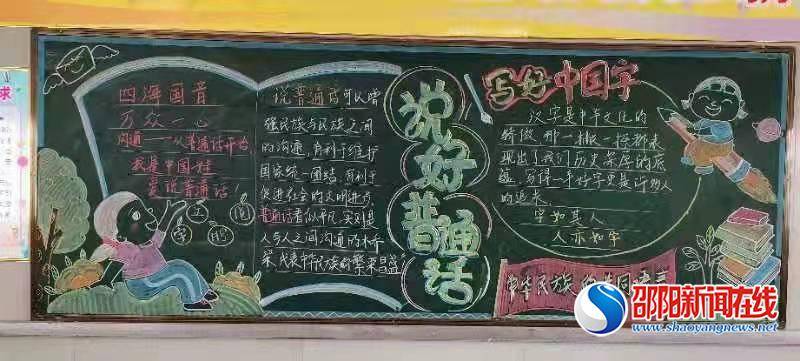 四海国音
万众一心
沟通——从普通话开始
我是中国娃
爱说普通话!
说普通话可以增
强民族与民族之间
的沟通,有利于维护
国家统一团结,有利于
促进社会的文明进步
普通话看似平凡,实则是
人与人之间沟通的桥
梁,代表中华民族的繁荣昌盛
说好普通话
写好中国字
汉字是中华文化的
骄傲,那一撇一捺都表
现出了我们历史紫厚的底
蕴,写得一手好字更是许多人
的追求。
字如其人
人亦如字
中华民族的共同语言
求
邵阳新闻在线
www.shaoyangnews.net